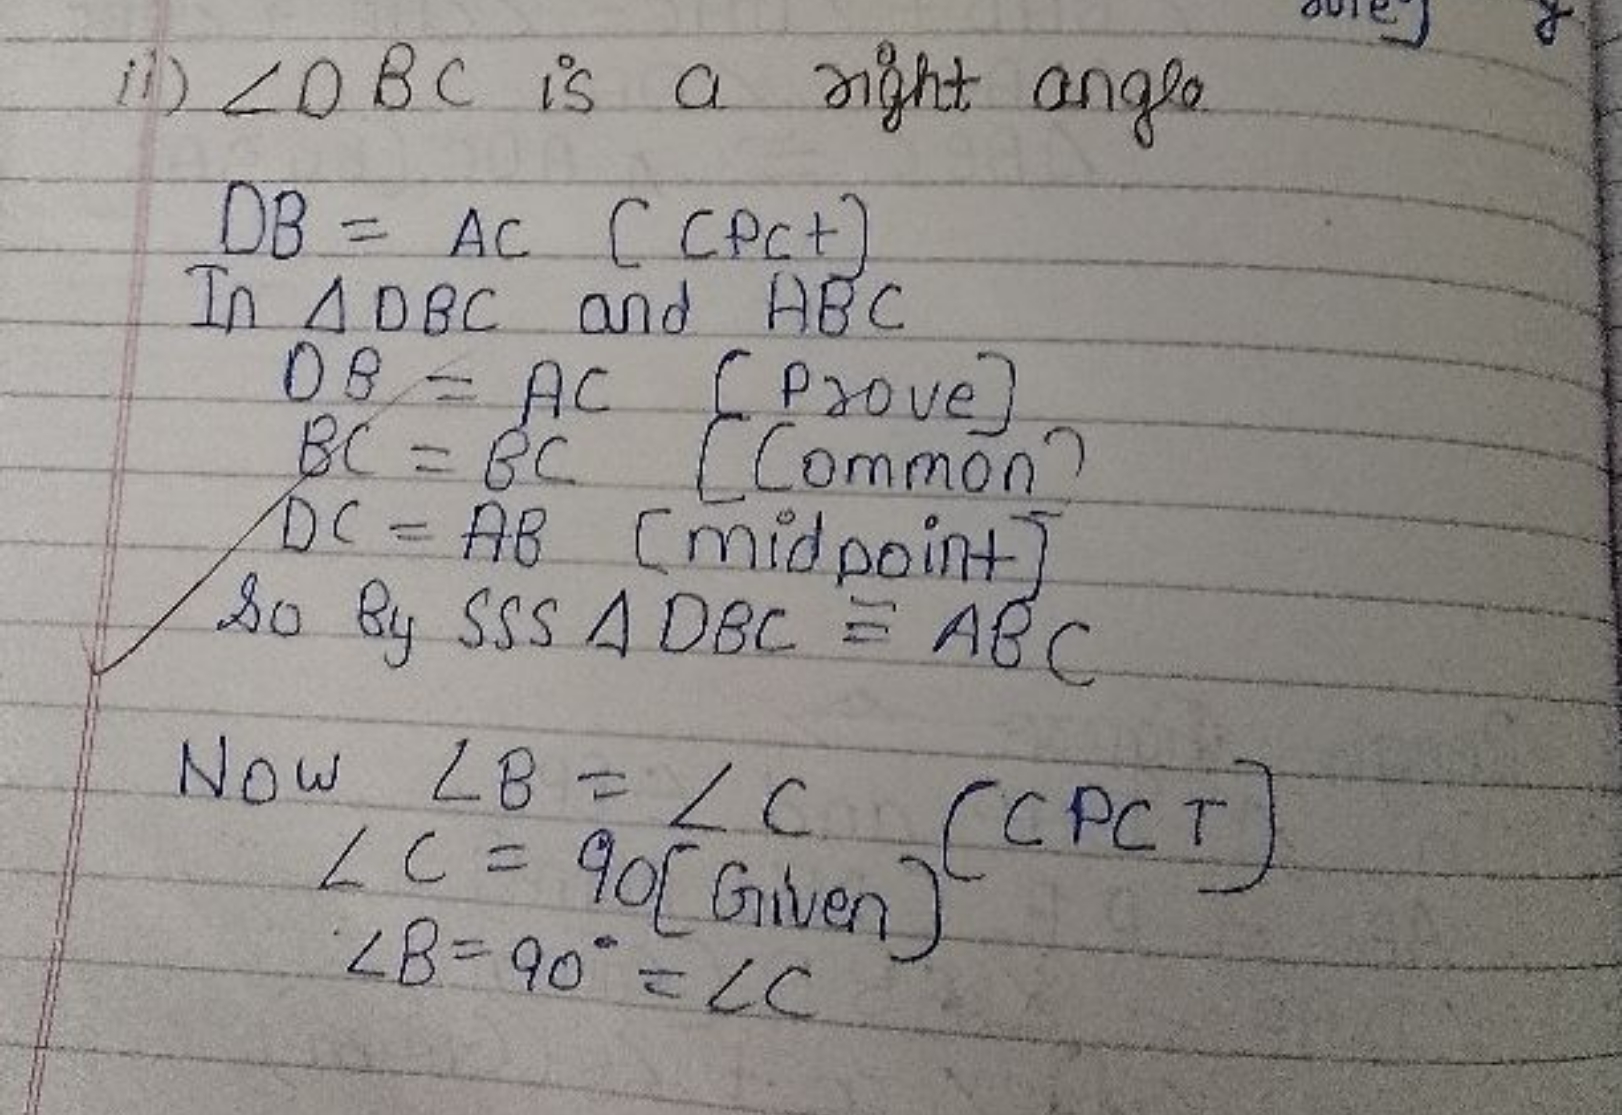 ii) ∠DBC is a right angle
DB = AC [CPCt]
In Δ DBC and ABC
DB = AC [Prove]
BC = BC [Common]
DC = AB [midpoint]
So By SSS Δ DBC ≅ ABC
Now ∠B = ∠C [CPCT]
∠C = 90 [Given]
∠B = 90° = ∠C